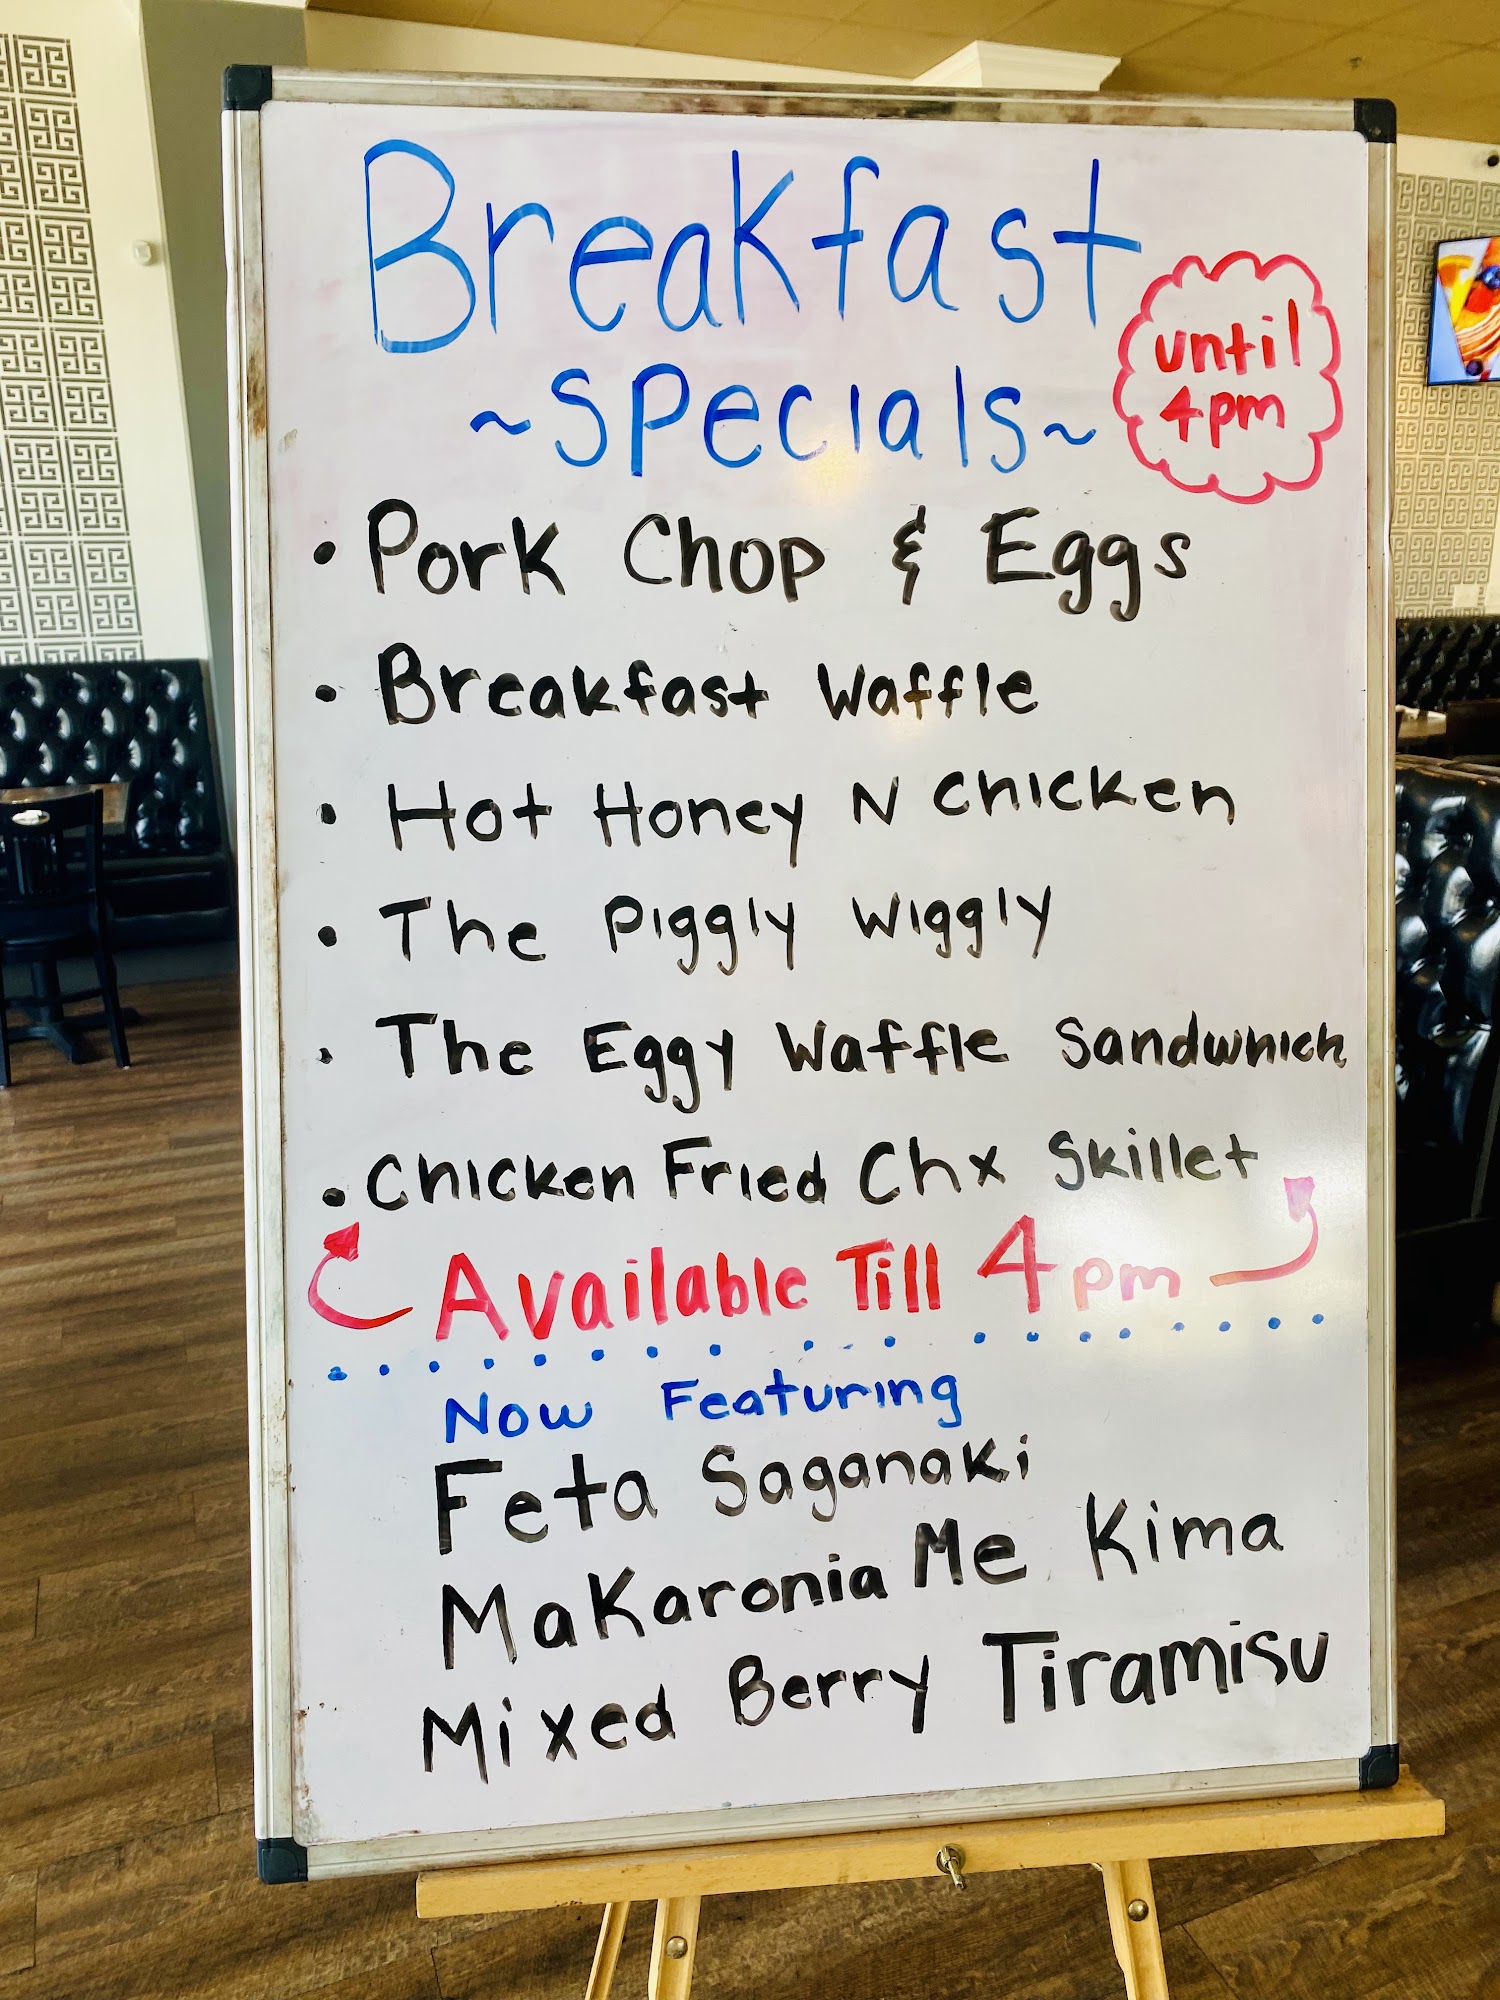 Breakfast
~Specials~
until
4pm
• Pork Chop & Eggs
• Breakfast Waffle
• Hot Honey N Chicken
• The Piggly Wiggly
• The Eggy Waffle Sandwhich
• Chicken Fried Chx Skillet
Available Till 4pm
Now Featuring
Feta Saganaki
Makaronia Me Kima
Mixed Berry Tiramisu